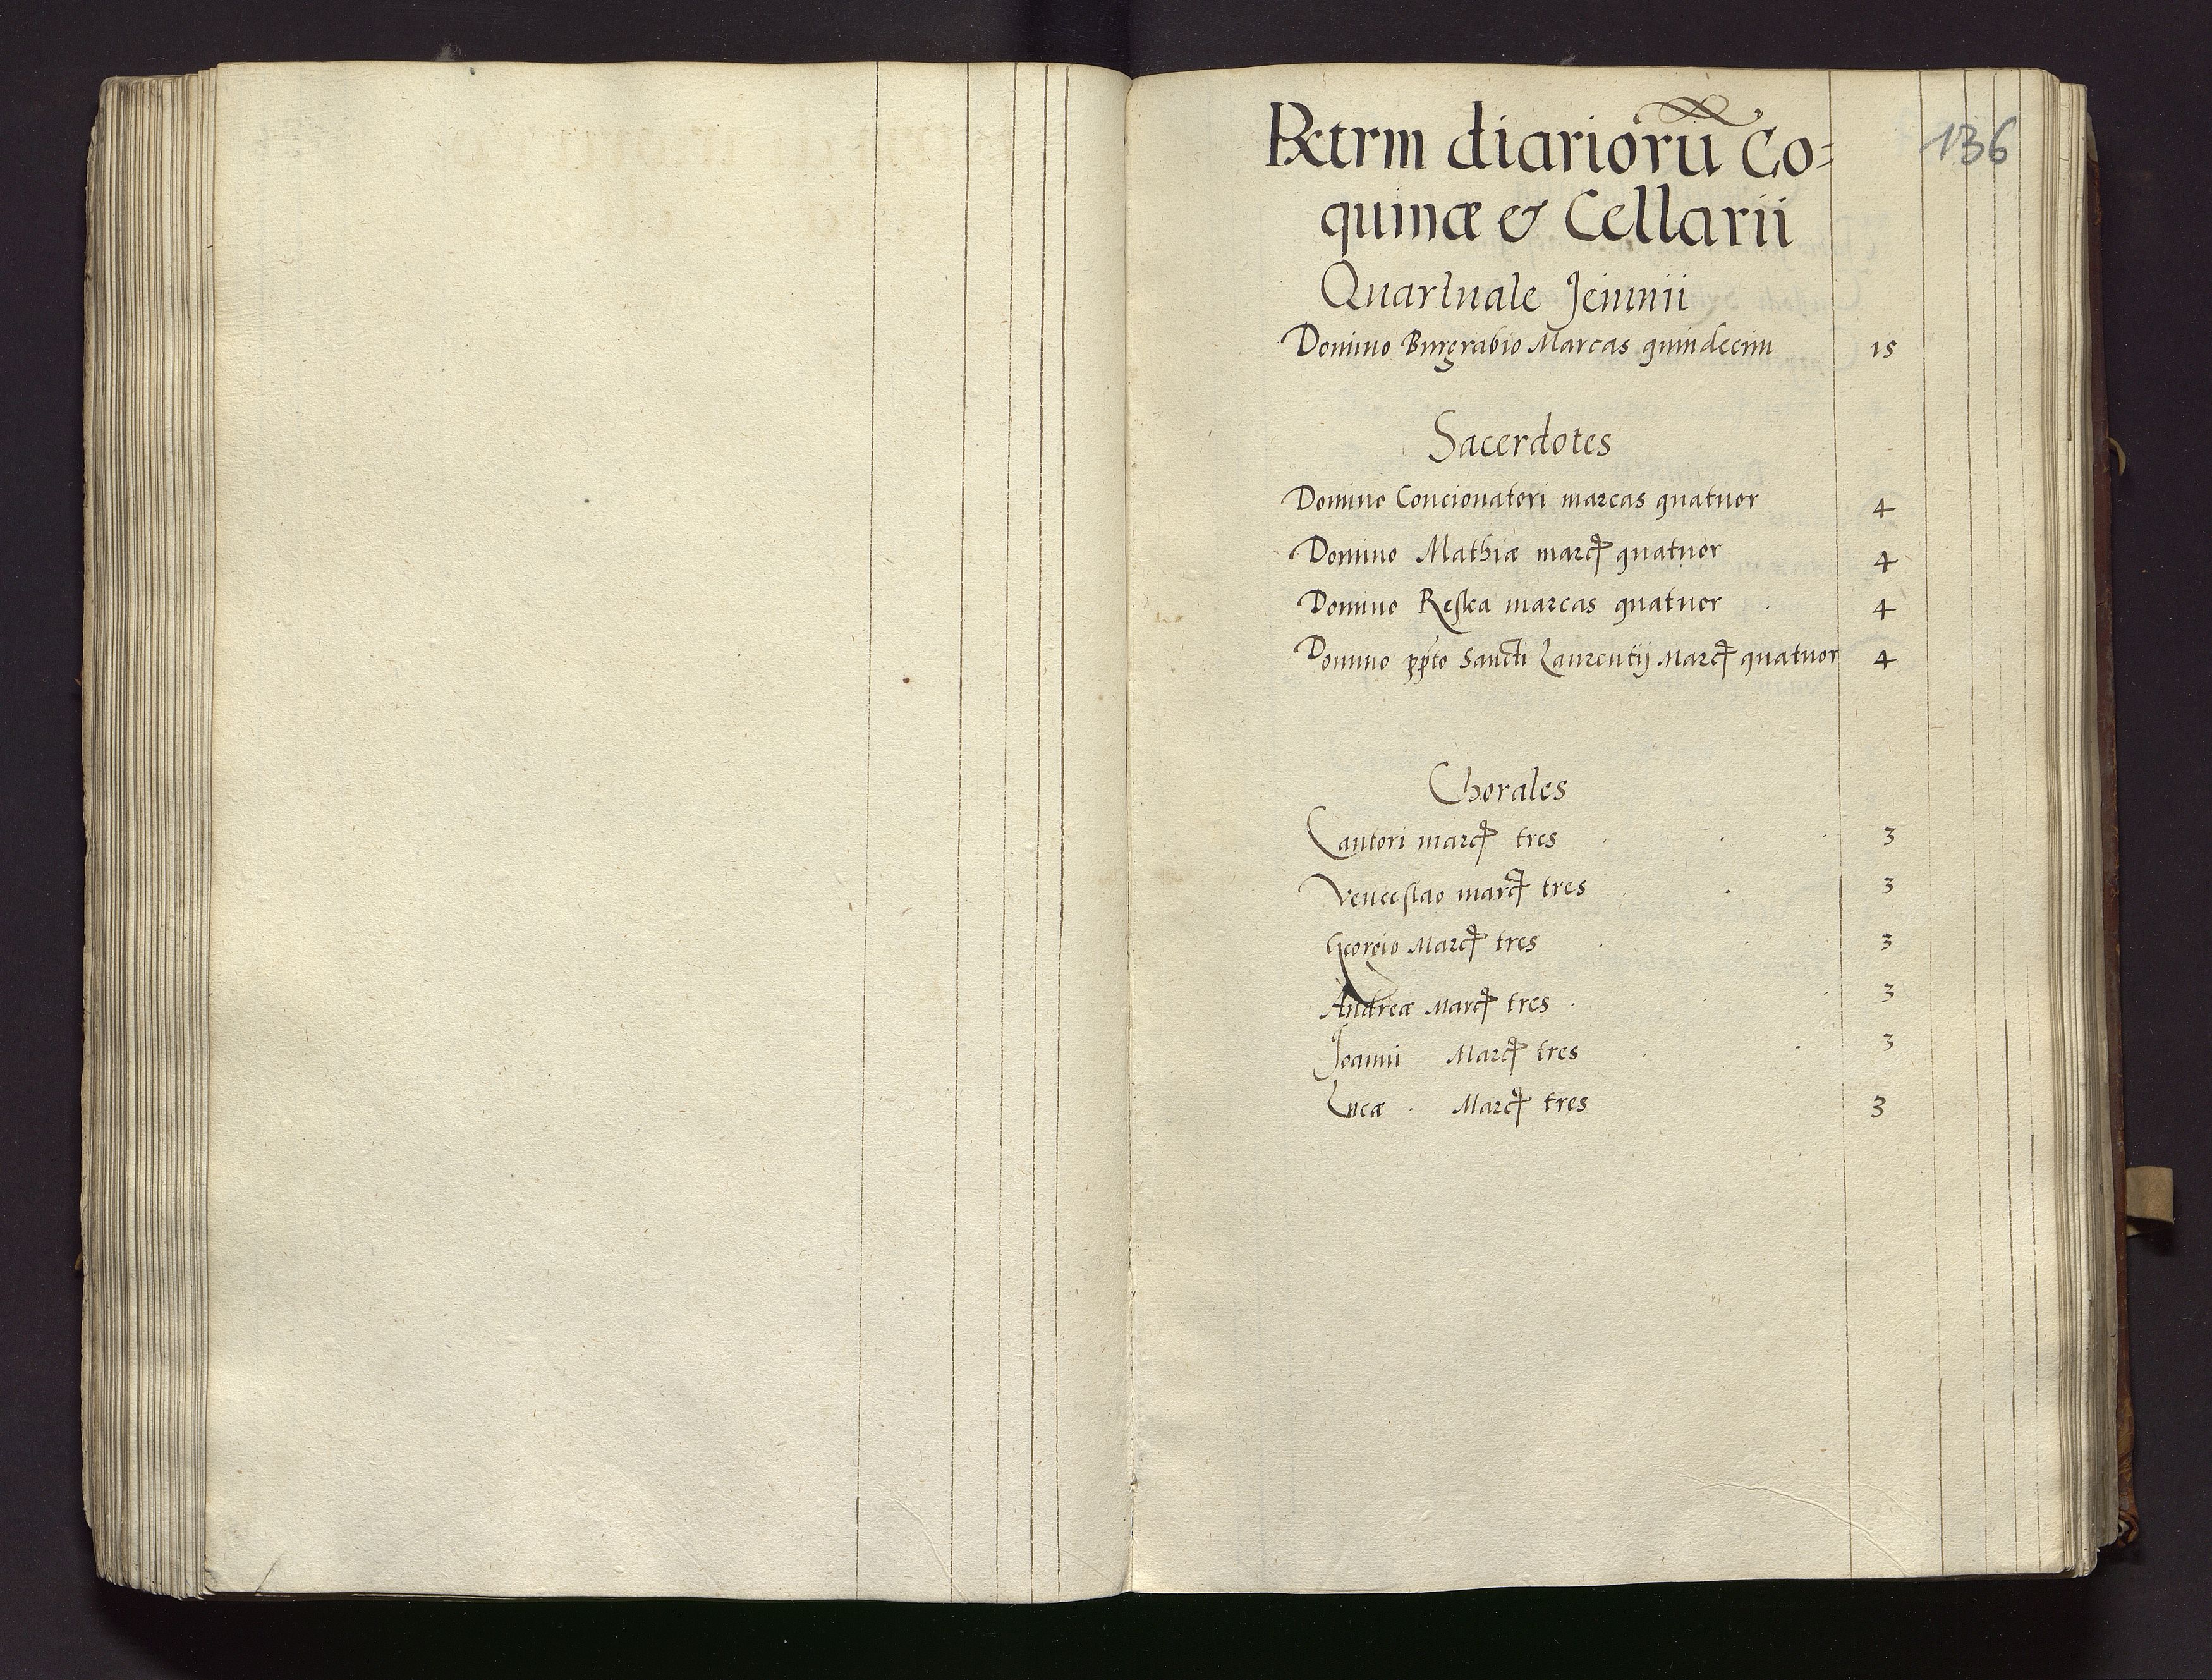 136
Rctrm diariorū Co=
quinæ & Cellarii
Quartuale Jeiunii
Domino Burgrabio Marcas quindecim 15
Sacerdotes
Domino Concionatori marcas quatuor 4
Domino Mathiæ marcꝭ quatuor 4
Domino Reska marcas quatuor 4
Domino ppto Sancti Laurentij Marcꝭ quatuor 4
Chorales
Cantori marcꝭ tres 3
Venceslao marcꝭ tres 3
Georgio Marcꝭ tres 3
Andreæ Marcꝭ tres 3
Joanni Marcꝭ tres 3
Lucæ Marcꝭ tres 3